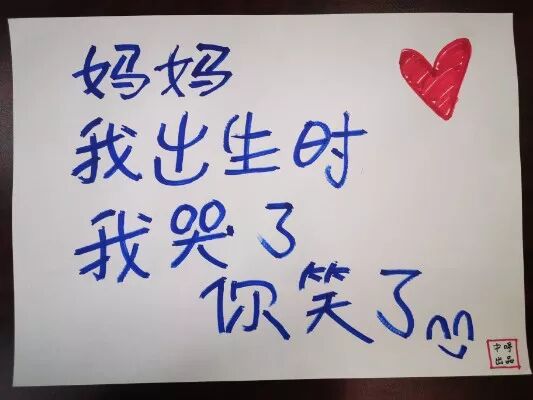 妈妈
我出生时
我哭了
你笑了
中呼
出品